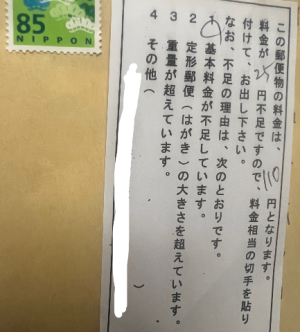 85
NIPPON
この郵便物の料金は、110円となります。
料金が25円不足ですので、料金相当の切手を貼り
付けて、お出し下さい。
なお、不足の理由は、次のとおりです。
1 基本料金が不足しています。
2 定形郵便(はがき)の大きさを超えています。
3 重量が超えています。
4 その他( )